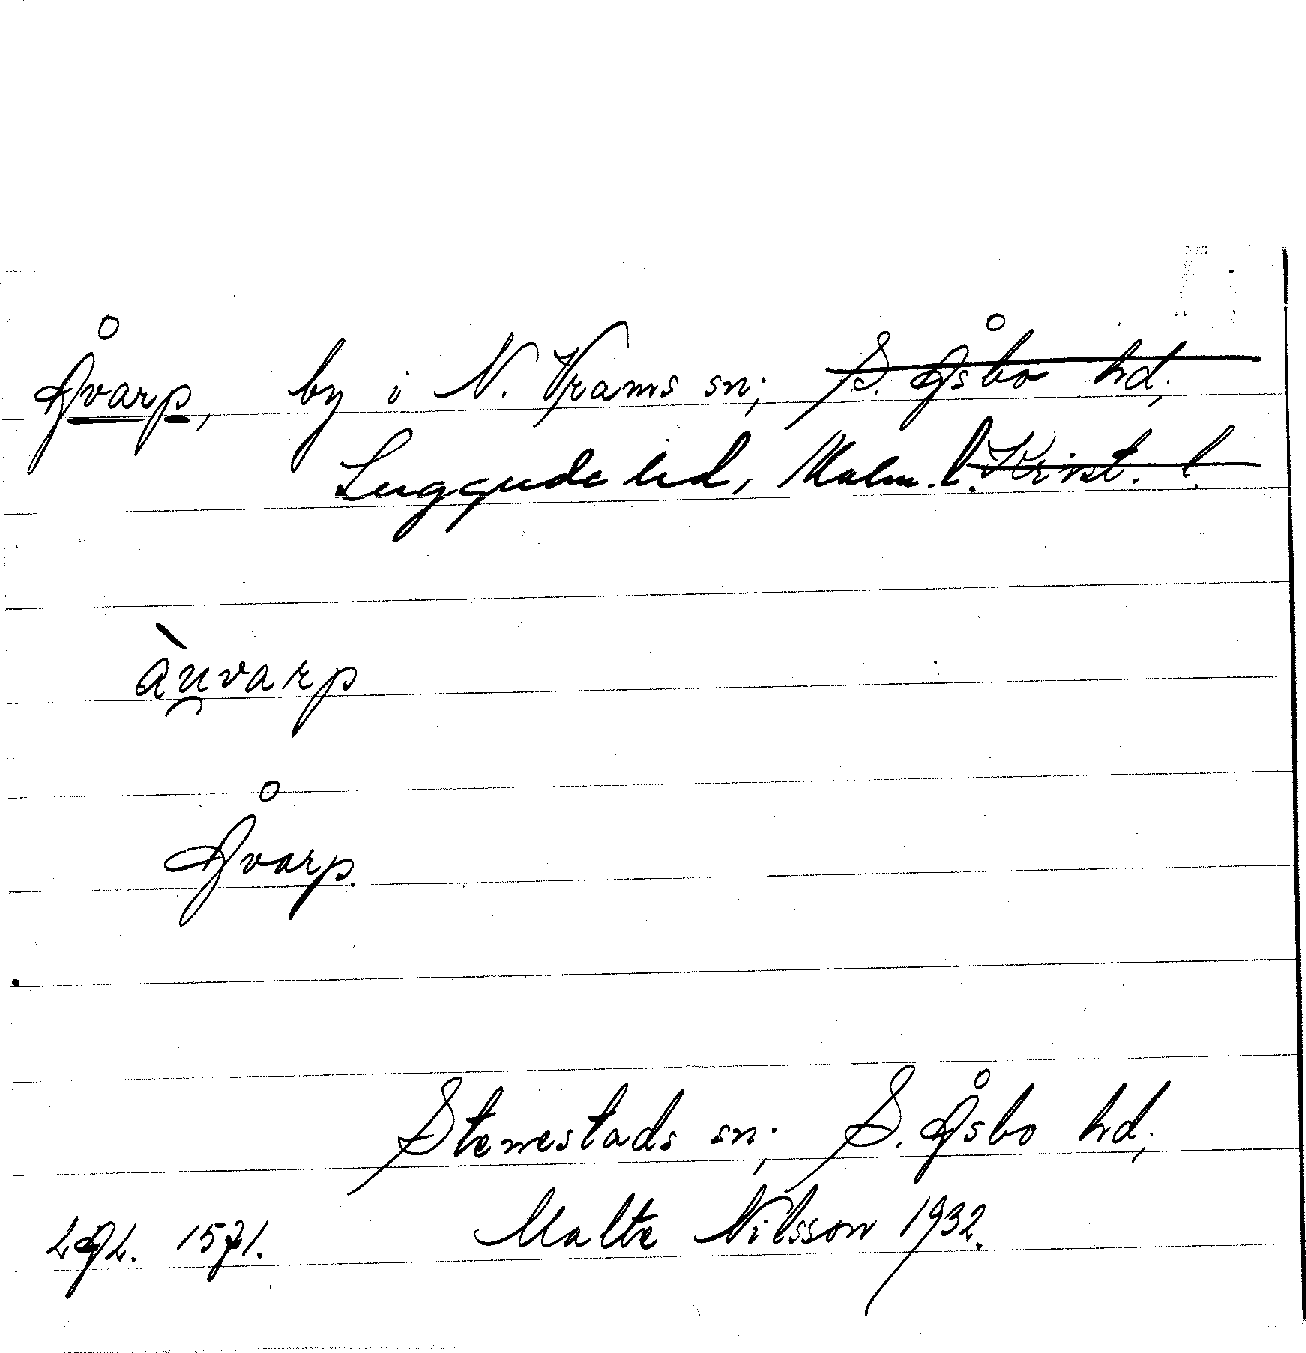 Åvarp, by i N. Vrams sn; S. Åsbo hd,
Luggude hd, Malm. l. Krist. l.
àu̯varp
Åvarp.
Stenestads sn; S. Åsbo hd;
Malte Nilsson 1932.
LAL. 1571.